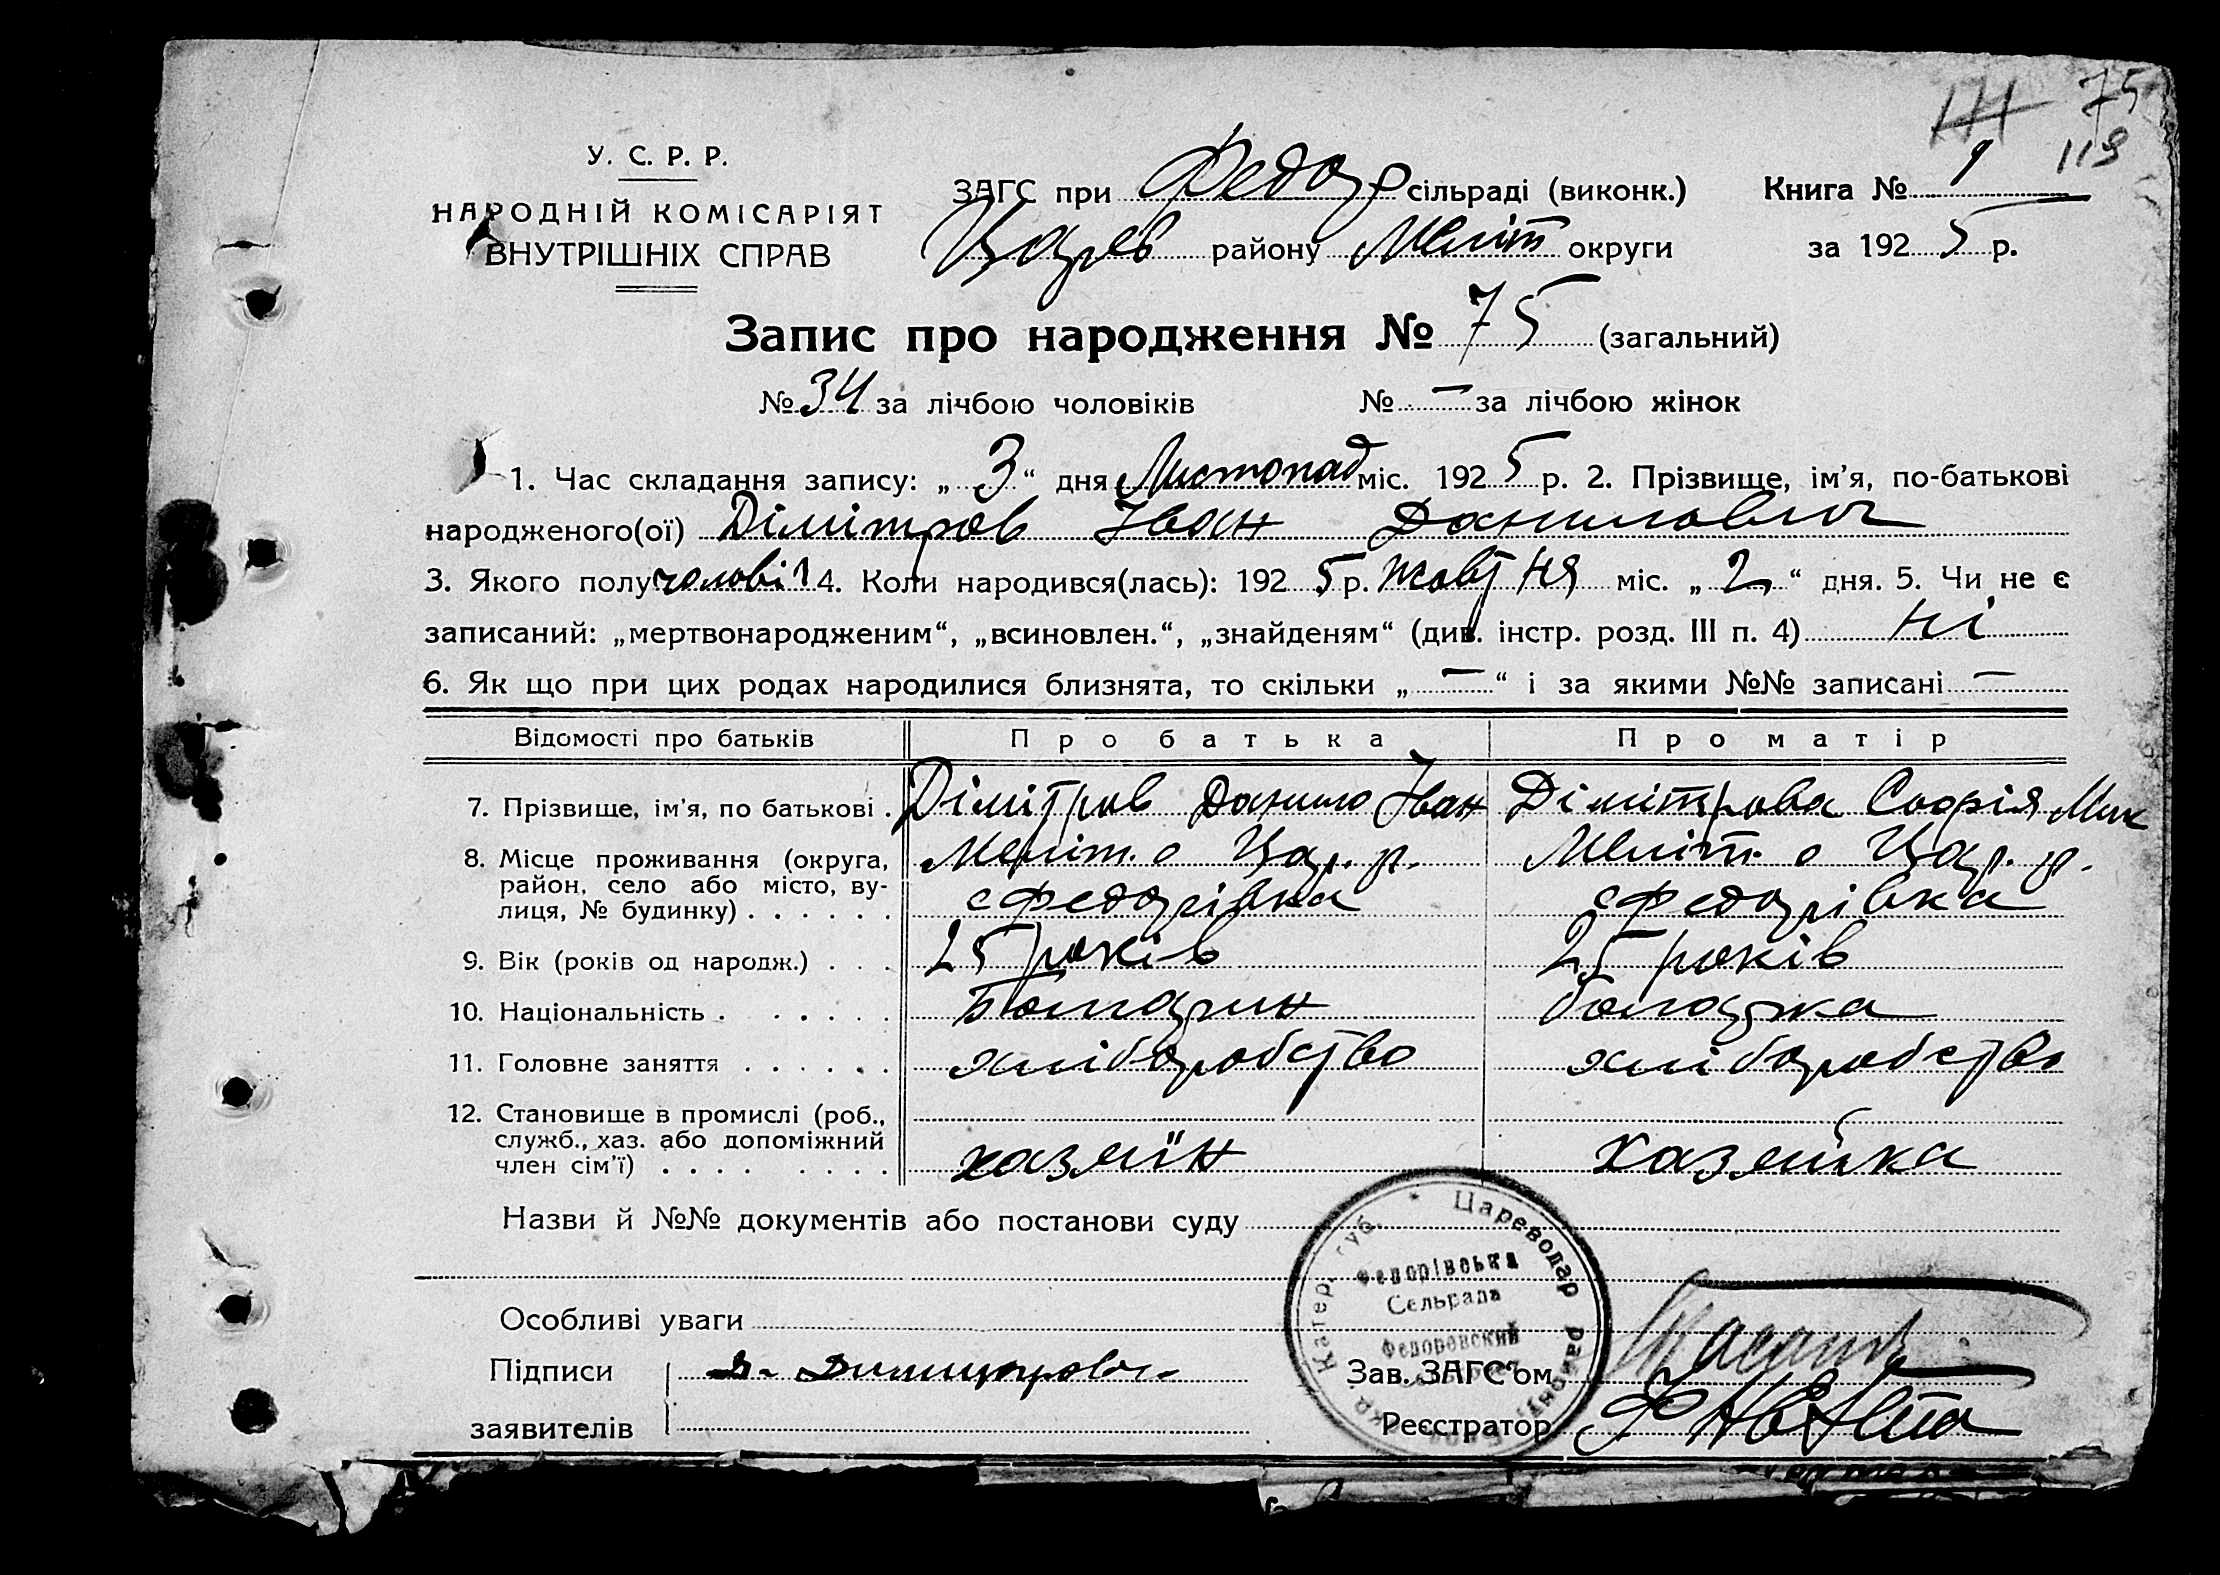 75
171
113
У. С. Р. Р.
НАРОДНІЙ КОМІСАРІЯТ
ВНУТРІШНІХ СПРАВ
ЗАГС при Федор сільраді (виконк.) Книга № 1
Царев району Меліт округи за 1925 р.
Запис про народження № 75 (загальний)
№ 34 за лічбою чоловіків № — за лічбою жінок
1. Час складання запису: „ 3 “ дня Листопад міс. 1925 р. 2. Прізвище, ім'я, по-батькові
народженого(ої) Дімітров Іван Данилович
3. Якого полу чолові 4. Коли народився(лась): 1925 р. жовтня міс. „ 2 “ дня. 5. Чи не є
записаний: „мертвонародженим“, „всиновлен.“, „знайденям“ (див. інстр. розд. III п. 4) ні
6. Як що при цих родах народилися близнята, то скільки „ — “ і за якими №№ записані —
Відомості про батьків Про батька Про матір
7. Прізвище, ім'я, по батькові . Дімітров Данило Іван Дімітрова Софія Мик
8. Місце проживання (округа, Меліт. о Цар. р. Меліт. о Цар. р.
район, село або місто, ву-
лиця, № будинку) . . . . . . с Федорівка с Федорівка
9. Вік (років од народж.) . . . 25 років 25 років
10. Національність . . . . . . Болгарин болгарка
11. Головне заняття . . . . . . хліборобство хліборобство
12. Становище в промислі (роб.,
служб., хаз. або допоміжний
член сім'ї) . . . . . . . . хазяїн хазяйка
Назви й №№ документів або постанови суду
Катер. губ. * Цареводар район
Федорівська
Сельрада
Федоровский
Особливі уваги
Підписи Д. Димитров
Зав. ЗАГС'ом
заявителів
Реєстратор